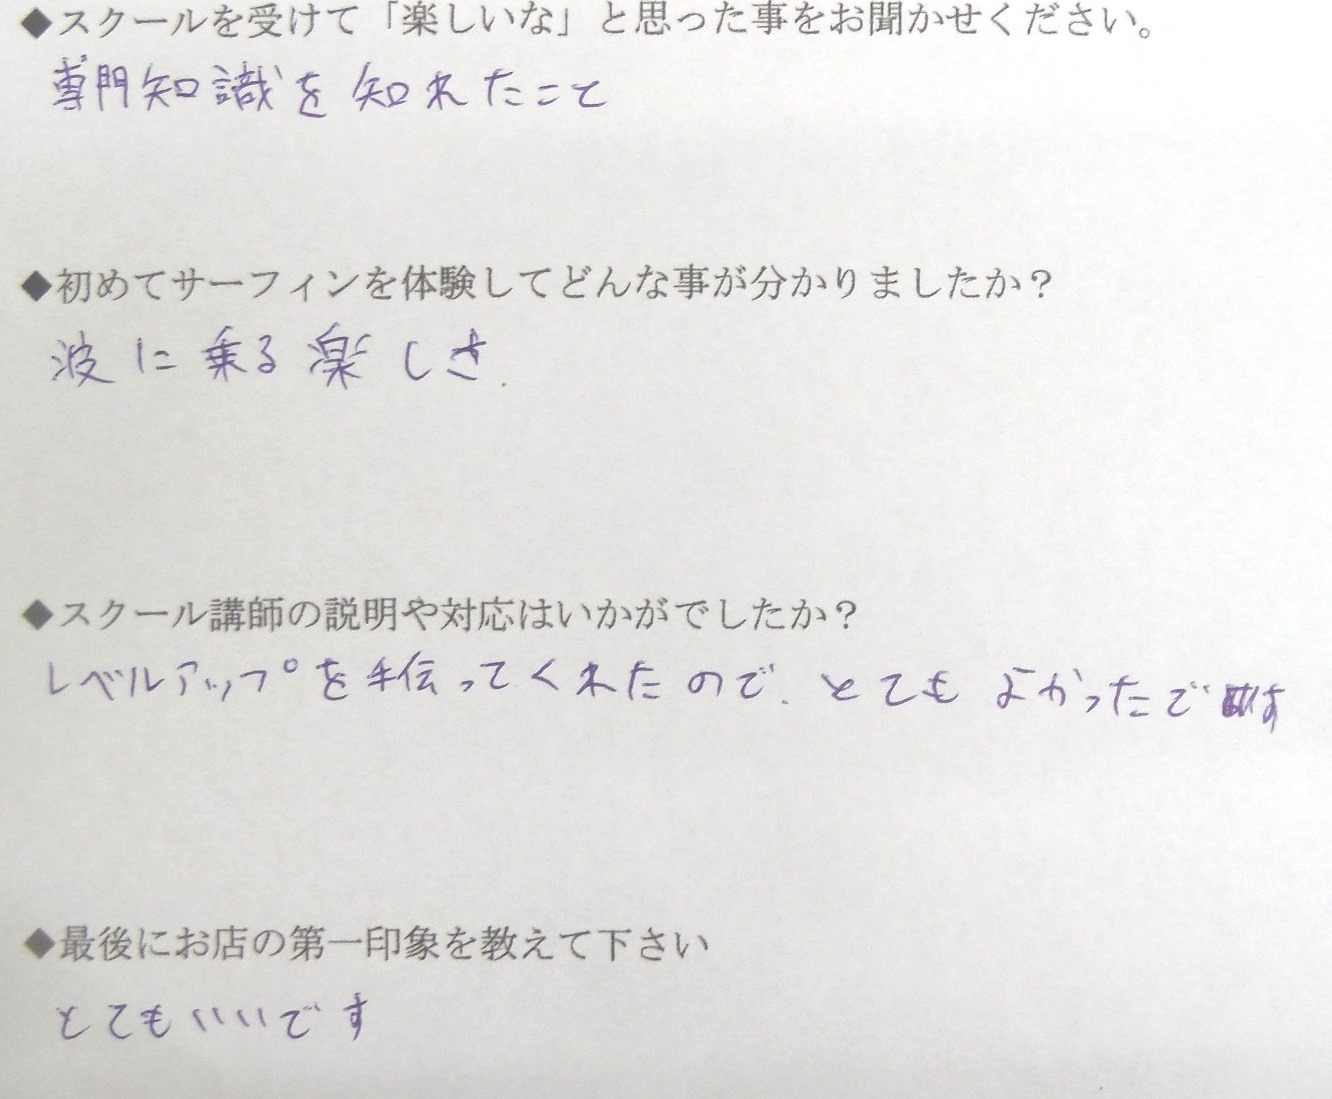 ◆スクールを受けて「楽しいな」と思った事をお聞かせください。
専門知識を知れたこと
◆初めてサーフィンを体験してどんな事が分かりましたか？
波に乗る楽しさ.
◆スクール講師の説明や対応はいかがでしたか？
レベルアップを手伝ってくれたので、とてもよかったです
◆最後にお店の第一印象を教えて下さい
とてもいいです